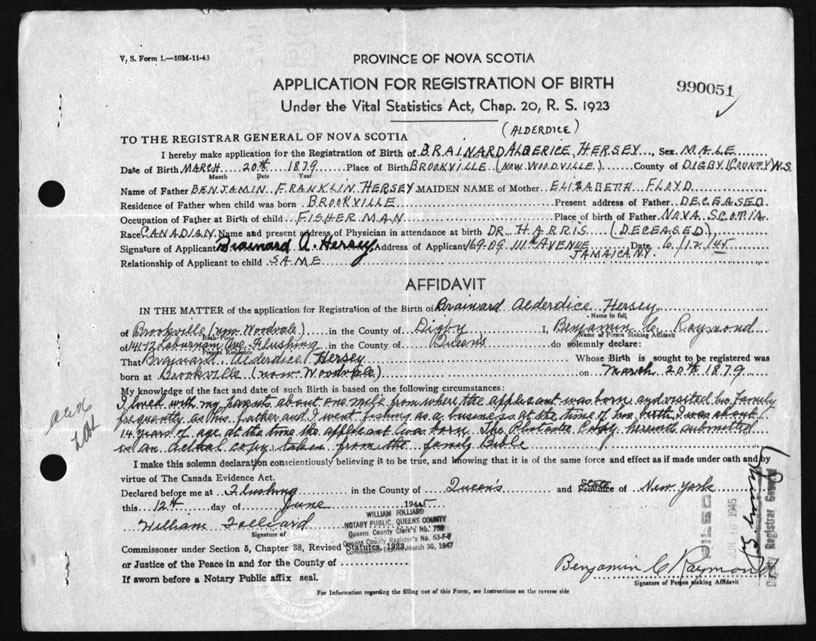 V. S. Form 1.—10M-11-43
PROVINCE OF NOVA SCOTIA
APPLICATION FOR REGISTRATION OF BIRTH
990051
Under the Vital Statistics Act, Chap. 20, R. S. 1923
(ALDERDICE)
TO THE REGISTRAR GENERAL OF NOVA SCOTIA
I hereby make application for the Registration of Birth of BRAINARD ALBERICE HERSEY, Sex MALE
Date of Birth MARCH 20th 1879 Place of Birth BROOKVILLE (NOW WOODVILLE) County of DIGBY (COUNTY) N.S.
Month Date Year
Name of Father BENJAMIN FRANKLIN HERSEY MAIDEN NAME of Mother ELIZABETH FLOYD
Residence of Father when child was born BROOKVILLE Present address of Father DECEASED
Occupation of Father at Birth of child FISHERMAN Place of birth of Father NOVA SCOTIA
Race CANADIAN Name and present address of Physician in attendance at birth DR. HARRIS (DECEASED)
Signature of Applicant Brainard A. Hersey Address of Applicant 169-09 111th AVENUE Date 6/12/45
JAMAICA NY.
Relationship of Applicant to child SAME
AFFIDAVIT
IN THE MATTER of the application for Registration of the Birth of Brainard Alderdice Hersey
Name in full
of Brookville (now Woodvale) in the County of Digby I, Benjamin C. Raymond
Birth Place Name of Person Making Affidavit
of 14172 Laburnam Ave. Flushing in the County of Queens do solemnly declare:
Present Residence
That Brainard Alderdice Hersey Whose Birth is sought to be registered was
born at Brookville (now Woodvale) on March 20th 1879
My knowledge of the fact and date of such Birth is based on the following circumstances:
I lived with my parents about one mile from where the applicant was born and visited his family
frequently as his father and I went fishing as a business at the time of his birth, I was about
14 years of age at the time the applicant was born. The Photostatic Copy herewith submitted
is an actual copy taken from the family Bible
I make this solemn declaration conscientiously believing it to be true, and knowing that it is of the same force and effect as if made under oath and by
virtue of The Canada Evidence Act.
Declared before me at Flushing in the County of Queen's and State Province of New York
this 12th day of June 1945
William Folliard
Signature of
WILLIAM FOLLIARD
NOTARY PUBLIC, QUEENS COUNTY
Queens County Clerk's No. 759
Queens County Register's No. 63-F-7
Commission Expires March 30, 1947
Commissoner under Section 5, Chapter 38, Revised Statutes, 1923,
or Justice of the Peace in and for the County of
If sworn before a Notary Public affix seal.
Benjamin C Raymond
Signature of Person Making Affidavit
For Information regarding the filling out of this Form, see Instructions on the reverse side
FILED
1945
Registrar General